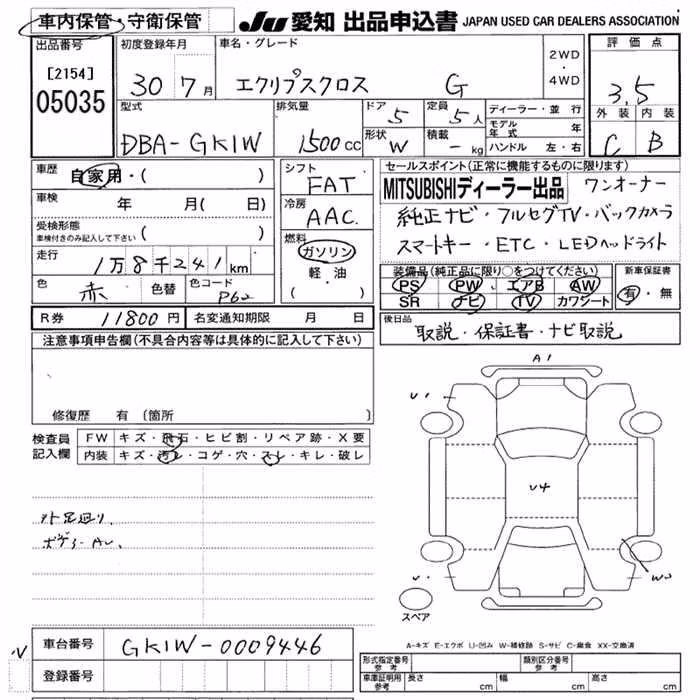 車内保管・守衛保管
JU 愛知 出品申込書 JAPAN USED CAR DEALERS ASSOCIATION
出品番号 [2154] 05035
初度登録年月 30 7月
車名・グレード エクリプスクロス G
2WD・4WD
評価点 3.5
外装 内装
C B
型式 DBA-GK1W
排気量 1500cc
ドア 5 定員 5人
形状 W 積載 - kg
ディーラー・並行
モデル年式 年
ハンドル 左・右
車歴 自家用・( )
車検 年 月( 日)
受検形態 車検付きのみ記入して下さい ( )
走行 1万8千241km
色 赤 色替 色コード P62
シフト FAT
冷房 AAC
燃料 ガソリン
軽・油
・( )
セールスポイント(正常に機能するものに限ります)
MITSUBISHIディーラー出品 ワンオーナー
純正ナビ・フルセグTV・バックカメラ
スマートキー・ETC・LEDヘッドライト
装備品(純正品に限り○をつけてください) 新車保証書
PS PW エアB AW 有・無
SR ナビ TV カワシート
R券 11800円 名変通知期限 月 日
後日品 取説・保証書・ナビ取説
注意事項申告欄(不具合内容等は具体的に記入して下さい)
修復歴 有 〔箇所
検査員記入欄
FW キズ・飛石・ヒビ割・リペア跡・X要
内装 キズ・汚レ・コゲ・穴・スレ・キレ・破レ
外足廻り.
A1
U1
U4
スペア
A-キズ E-エクボ U-凹み W-補修跡 S-サビ C-腐食 XX-交換済
車台番号 GK1W-0009446
登録番号
形式指定番号 参考 類別区分番号 参考
車庫証明用 参考 長さ cm 幅 cm 高さ cm